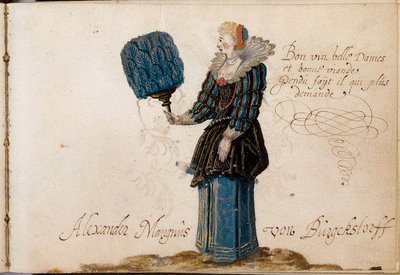 Bon vin belle Dames
et bonne viande
Pendu soÿt il qui plus
demande
Alexander Mangnus von Bürgckstorff